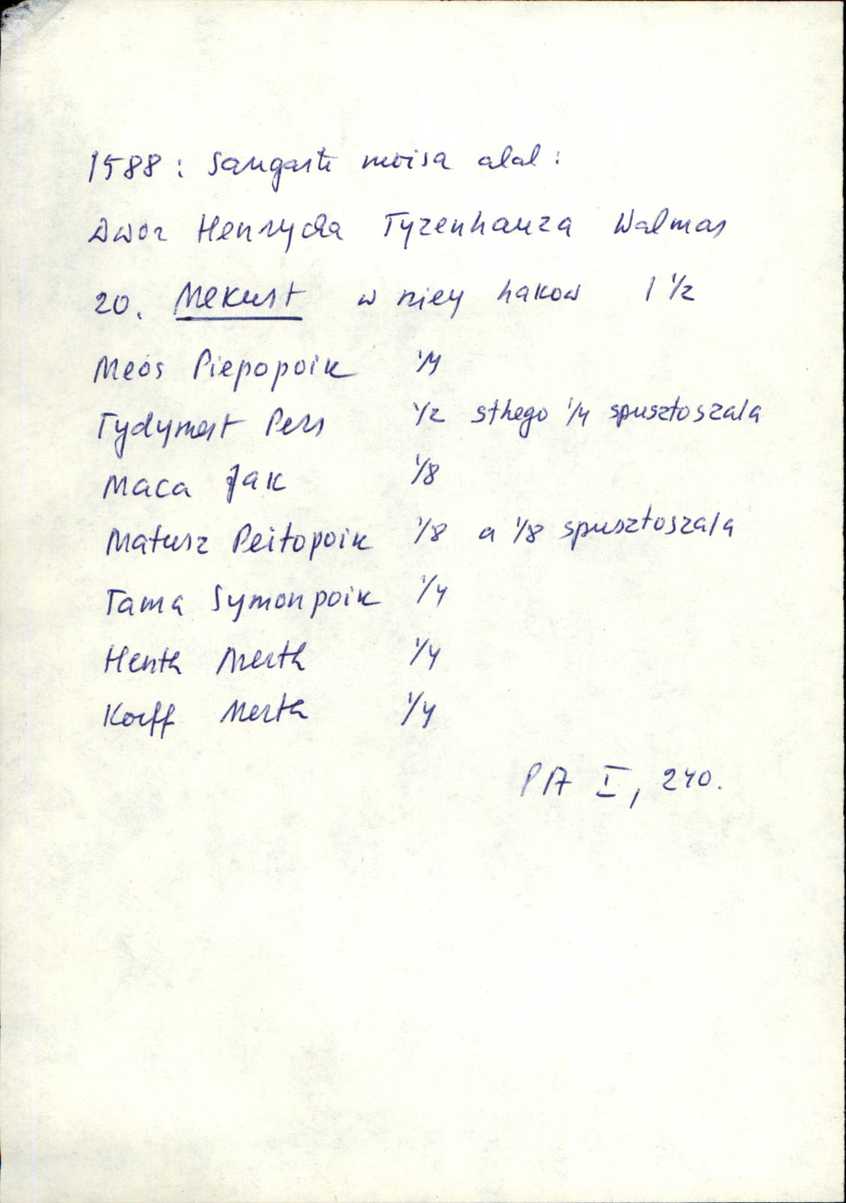 1588: Sangaste mõisa alal:
Dwor Henrycha Tyzenhauza Walmas
20. Mekust w niey hakow 1 1/2
Meos Piepopoik 1/4
Tydymest Pers 1/2 sthego 1/4 spusztoszala
Maca Jak 1/8
Matusz Peitopoik 1/8 a 1/8 spusztoszala
Tama Symonpoik 1/4
Henth Merth 1/4
Korff Merth 1/4
PA I, 240.